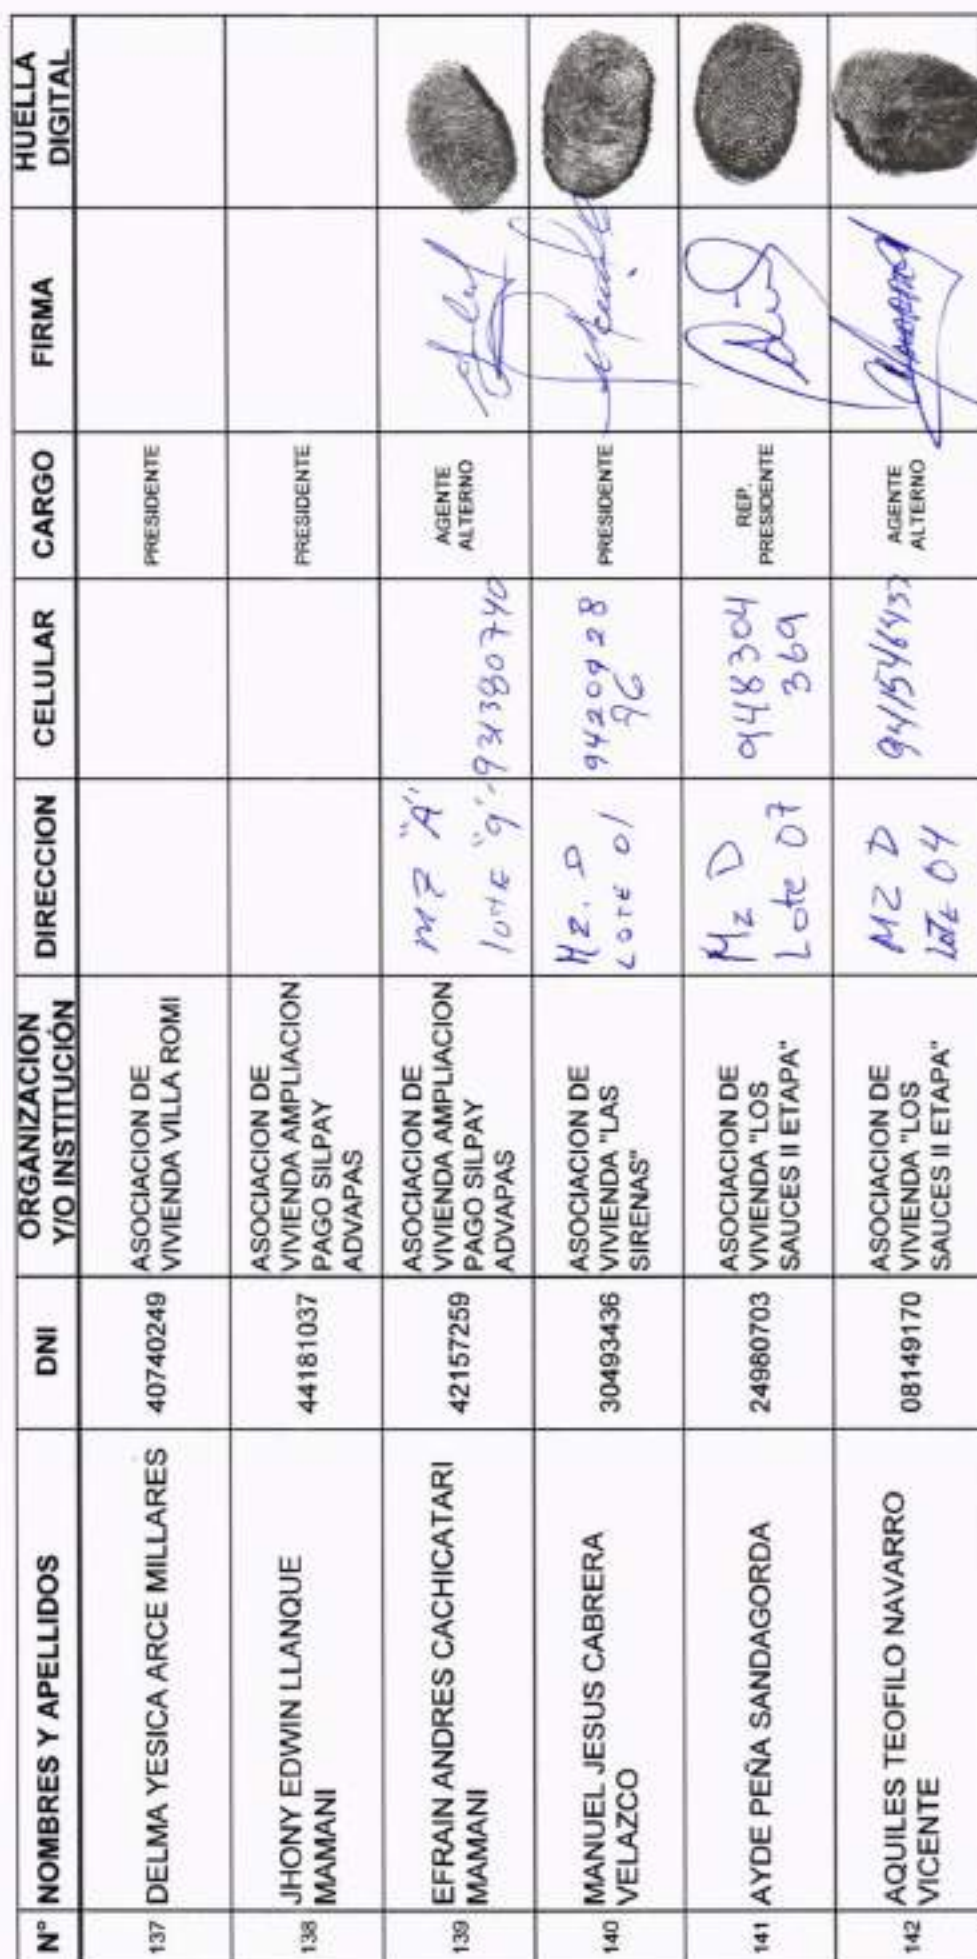 Nº NOMBRES Y APELLIDOS DNI ORGANIZACION Y/O INSTITUCIÓN DIRECCION CELULAR CARGO FIRMA HUELLA DIGITAL
137 DELMA YESICA ARCE MILLARES 40740249 ASOCIACION DE
VIVIENDA VILLA ROMI PRESIDENTE
138 JHONY EDWIN LLANQUE
MAMANI 44181037 ASOCIACION DE
VIVIENDA AMPLIACION
PAGO SILPAY
ADVAPAS PRESIDENTE
139 EFRAIN ANDRES CACHICATARI
MAMANI 42157259 ASOCIACION DE
VIVIENDA AMPLIACION
PAGO SILPAY
ADVAPAS MZ "A"
lote "9" 931380740 AGENTE
ALTERNO
140 MANUEL JESUS CABRERA
VELAZCO 30493436 ASOCIACION DE
VIVIENDA "LAS
SIRENAS" Mz. D
LOTE 01 9420928
96 PRESIDENTE
141 AYDE PEÑA SANDAGORDA 24980703 ASOCIACION DE
VIVIENDA "LOS
SAUCES II ETAPA" Mz D
Lote 07 948304
369 REP.
PRESIDENTE
142 AQUILES TEOFILO NAVARRO
VICENTE 08149170 ASOCIACION DE
VIVIENDA "LOS
SAUCES II ETAPA" MZ D
LoTE 04 AGENTE
ALTERNO